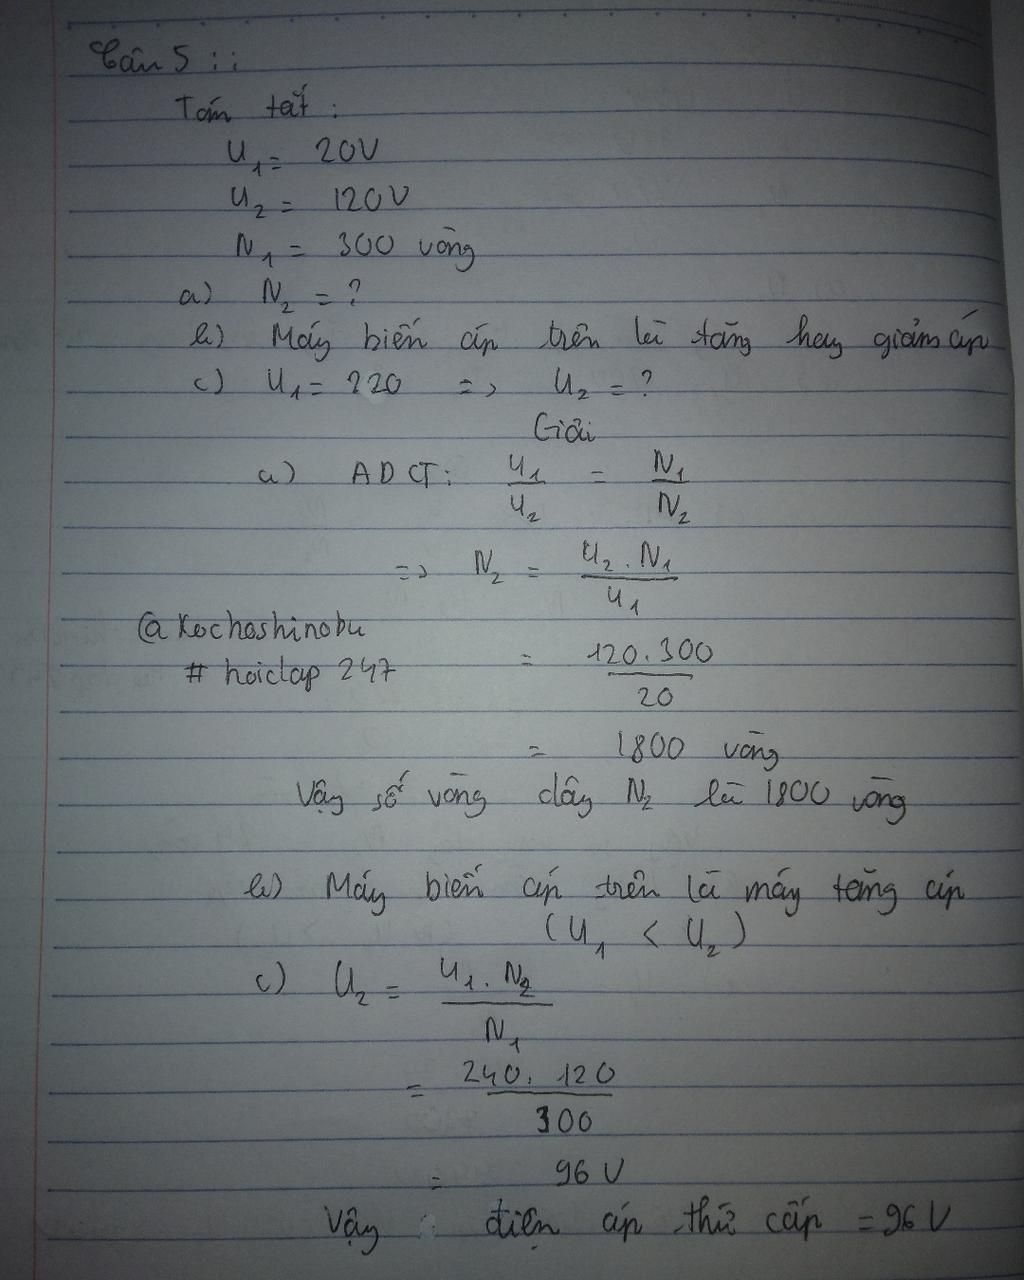 Câu 5 : :
Tóm tắt :
U1 = 20V
U2 = 120V
N1 = 300 vòng
a) N2 = ?
b) Máy biến áp trên là tăng hay giảm áp
c) U1 = 220 => U2 = ?
Giải
a) ADCT: U1/U2 = N1/N2
=> N2 = U2 . N1 / U1
@Kochoshinobu
= 120.300 / 20
# hoidap 247
= 1800 vòng
Vậy số vòng dây N2 là 1800 vòng
b) Máy biến áp trên là máy tăng áp
(U1 < U2)
c) U2 = U1 . N2 / N1
= 240. 120 / 300
= 96 V
Vậy : điện áp thứ cấp = 96 V